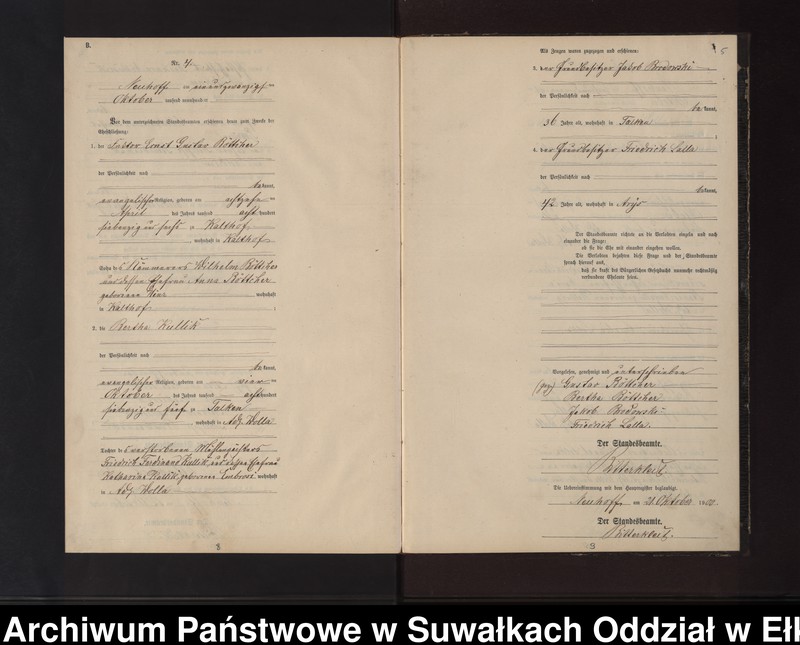 B.
Nr. 4
Neuhoff am einundzwanzigsten
Oktober tausend neunhundert
Vor dem unterzeichneten Standesbeamten erschienen heute zum Zwecke der
Eheschließung:
1. der Ernst Gustav Böttcher
der Persönlichkeit nach
bekannt,
evangelischer Religion, geboren am achtzehnten
April des Jahres tausend achthundert
siebenzig und sechs in Kalthof
wohnhaft in Kalthof
Sohn des Wilhelm Böttcher
und dessen Ehefrau Anna Böttcher
geborenen wohnhaft
in Kalthof
2. die Bertha Kullik
der Persönlichkeit nach
bekannt,
evangelischer Religion, geboren am vierten
Oktober des Jahres tausend achthundert
siebenzig und fünf in Talken
wohnhaft in Adl. Wolla
Tochter des verstorbenen Mühlenpächters
Friedrich Ferdinand Kullik und dessen Ehefrau
Katharina Kullik geborenen wohnhaft
in Adl. Wolla
8
5
Als Zeugen waren zugezogen und erschienen:
3. der Grundbesitzer Jakob Brodowski
der Persönlichkeit nach
bekannt,
36 Jahre alt, wohnhaft in Talken
4. der Grundbesitzer Friedrich Lalla
der Persönlichkeit nach
bekannt,
42 Jahre alt, wohnhaft in Arys
Der Standesbeamte richtete an die Verlobten einzeln und nach
einander die Frage:
ob sie die Ehe mit einander eingehen wollen.
Die Verlobten bejahten diese Frage und der Standesbeamte
sprach hierauf aus,
daß sie kraft des Bürgerlichen Gesetzbuchs nunmehr rechtmäßig
verbundene Eheleute seien.
Vorgelesen, genehmigt und unterschrieben
(gez.) Gustav Böttcher
Bertha Böttcher
Jakob Brodowski
Friedrich Lalla.
Der Standesbeamte.
Die Uebereinstimmung mit dem Hauptregister beglaubigt.
Neuhoff, am 21. Oktober 1900.
Der Standesbeamte.
9
Archiwum Państwowe w Suwałkach Oddział w Ełk